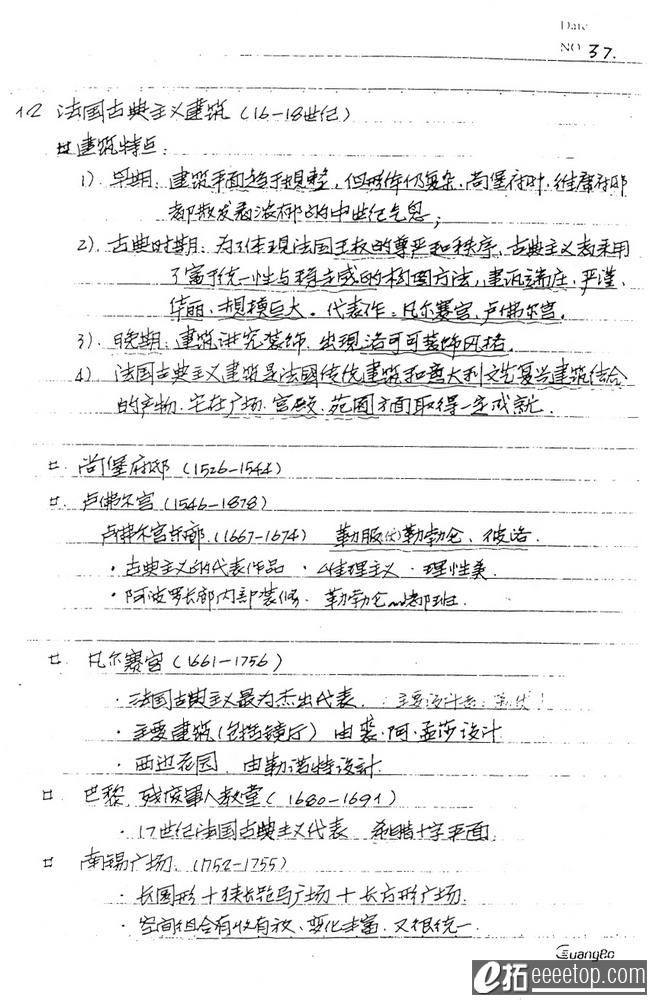 Date
NO 37.
12 法国古典主义建筑 (16-18世纪)
建筑特点:
1). 早期: 建筑平面趋于规整, 但形体仍复杂, 尚堡府邸, 维
都散发着浓郁的中世纪气息;
2). 古典时期: 为了体现法国王权的尊严和秩序, 古典主义者采用
了富于统一性与稳定感的构图方法, 建筑端庄, 严谨,
华丽, 规模巨大。代表作: 凡尔赛宫, 卢佛尔宫.
3). 晚期: 建筑讲究装饰, 出现洛可可装饰风格.
4). 法国古典主义建筑是法國传统建筑和意大利文艺复兴建筑结合
的产物. 它在广场. 宫殿. 花园方面取得一定成就.
口. 尚堡府邸 (1526-1544)
口. 卢佛尔宫 (1546-1878)
卢佛尔宫东廊. (1667-1674) 勒服(伏)勒勃仑、彼洛.
· 古典主义的代表作品 · 唯理主义 · 理性美.
· 阿波罗长廊内部装修. 勒勃仑
口. 凡尔赛宫 (1661-1756)
· 法国古典主义最为杰出代表.
· 主要建筑(包括镜厅) 由裘·阿·孟莎设计
· 西边花园. 由勒诺特设計.
口 巴黎 残废軍人教堂 (1680-1691)
· 17世纪法国古典主义代表 希腊十字平面.
口 南锡广场. (1752-1755)
· 长圆形+狭长跑马广场+长方形广场.
· 空间组合有收有放、变化丰富. 又很统一.
GuangBo
e拓eeeetop.com